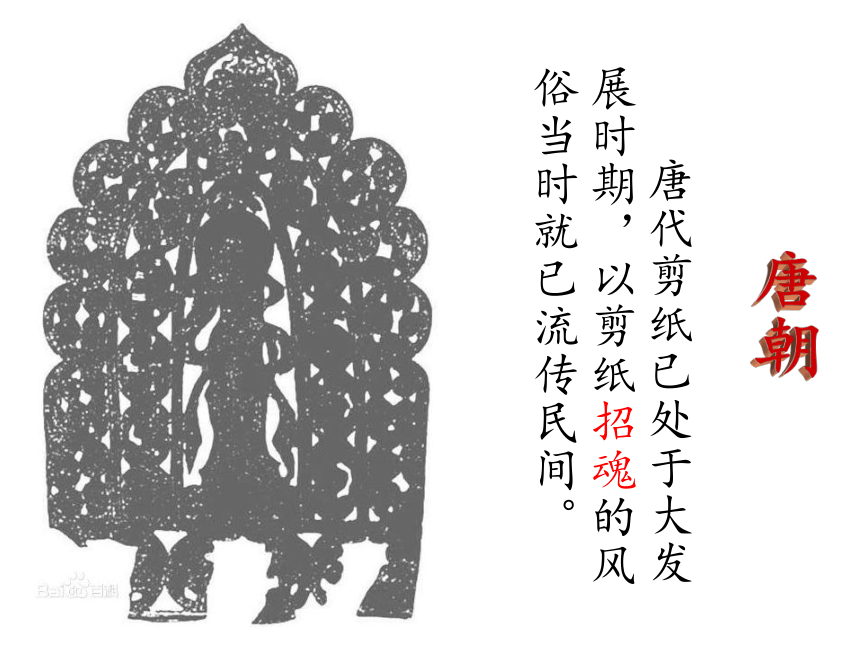 唐朝
唐代剪纸已处于大发
展时期，以剪纸招魂的风
俗当时就已流传民间。
Bai百科